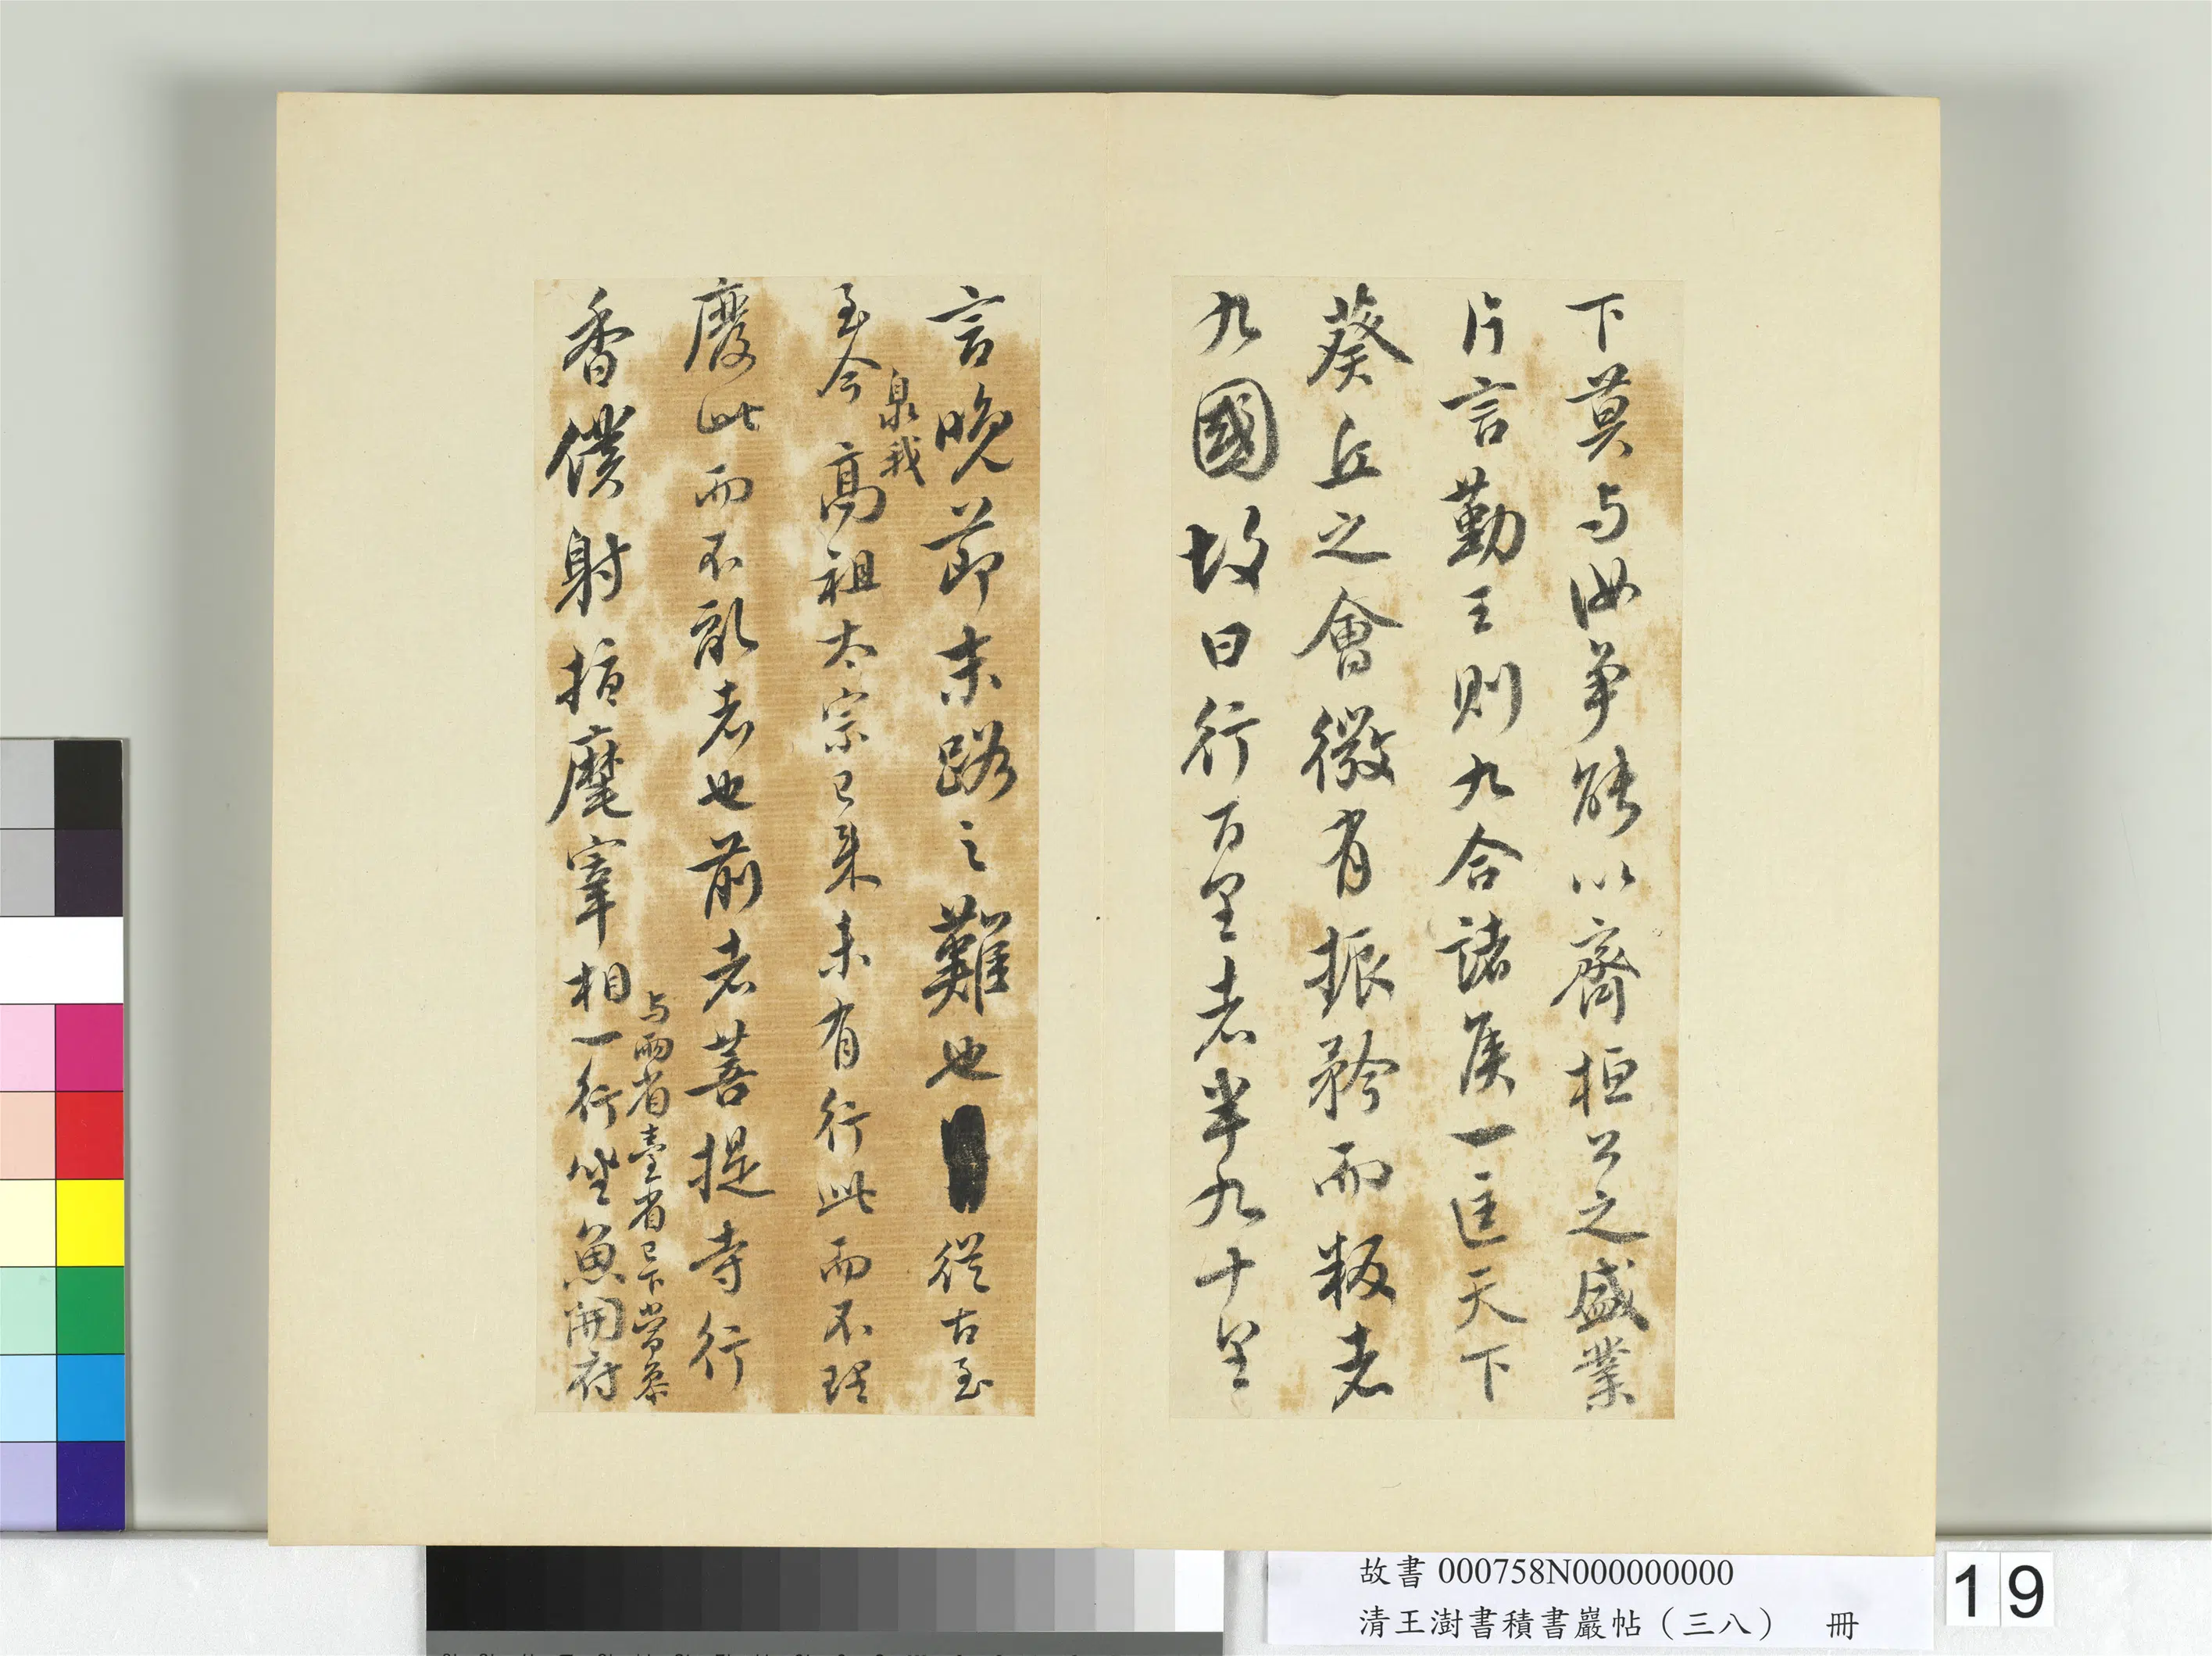 下莫与汝争能以齊桓公之盛業
片言勤王則九合諸侯一匡天下
葵丘之會微有振矜而叛者
九國故曰行百里者半九十里
言晚節末路之難也從古至
泉我
至今高祖太宗已来未有行此而不理
廢此而不亂者也前者菩提寺行
与兩省臺省已下常叅
香僕射指麾宰相一行坐魚開府
故書 000758N000000000
清王澍書積書巖帖(三八) 冊
19